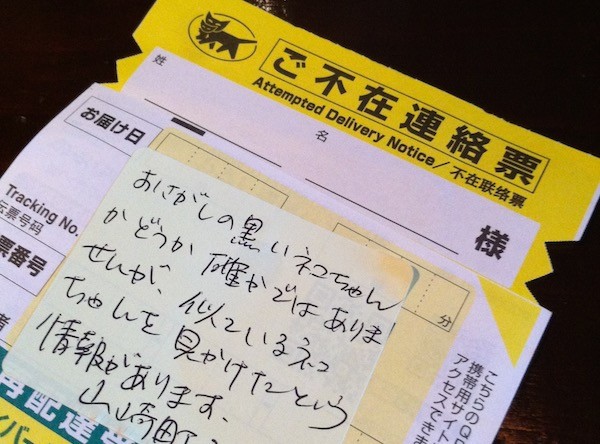 ご不在連絡票
Attempted Delivery Notice/不在联络票
姓
名
様
お届け日
Tracking No.
伝票号码
票番号
分
おさがしの黒いネコちゃん
かどうか、確かではありま
せんが、似ているネコ
ちゃんを見かけたという
情報があります、
山崎町
こちらのQ
携帯用サイト
アクセスできま